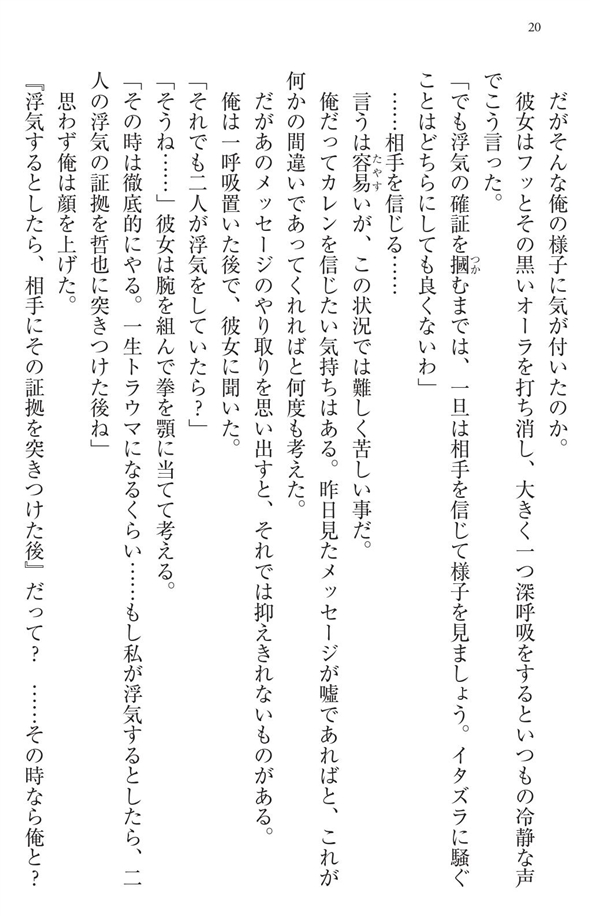 20
だがそんな俺の様子に気が付いたのか。
彼女はフッとその黒いオーラを打ち消し、大きく一つ深呼吸をするといつもの冷静な声
でこう言った。
「でも浮気の確証を摑むまでは、一旦は相手を信じて様子を見ましょう。イタズラに騒ぐ
ことはどちらにしても良くないわ」
……相手を信じる……
言うは容易いが、この状況では難しく苦しい事だ。
俺だってカレンを信じたい気持ちはある。昨日見たメッセージが嘘であればと、これが
何かの間違いであってくれればと何度も考えた。
だがあのメッセージのやり取りを思い出すと、それでは抑えきれないものがある。
俺は一呼吸置いた後で、彼女に聞いた。
「それでも二人が浮気をしていたら？」
「そうね……」彼女は腕を組んで拳を顎に当てて考える。
「その時は徹底的にやる。一生トラウマになるくらい……もし私が浮気するとしたら、二
人の浮気の証拠を哲也に突きつけた後ね」
思わず俺は顔を上げた。
『浮気するとしたら、相手にその証拠を突きつけた後』だって？　……その時なら俺と？